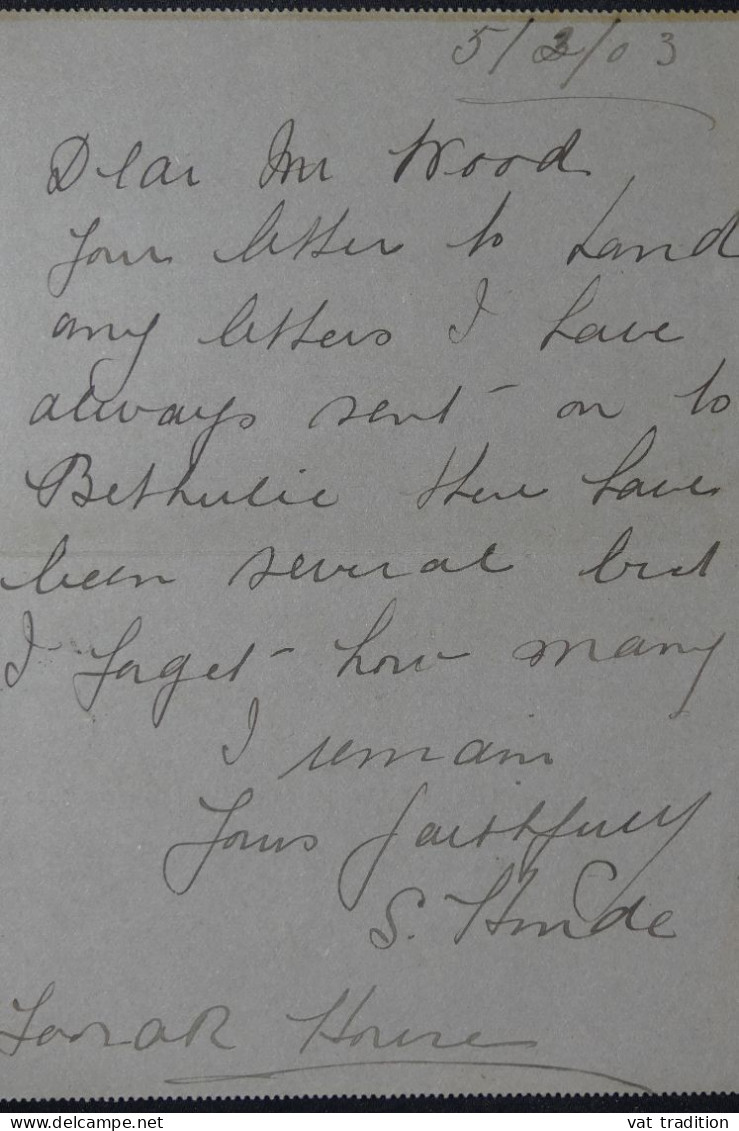 5/3/03
Dear Mr Wood
Your letter to hand
any letters I have
always sent on to
Bethulie there have
been several but
I forget how many
I remain
Yours faithfully
S. Hinde
House
vat tradition